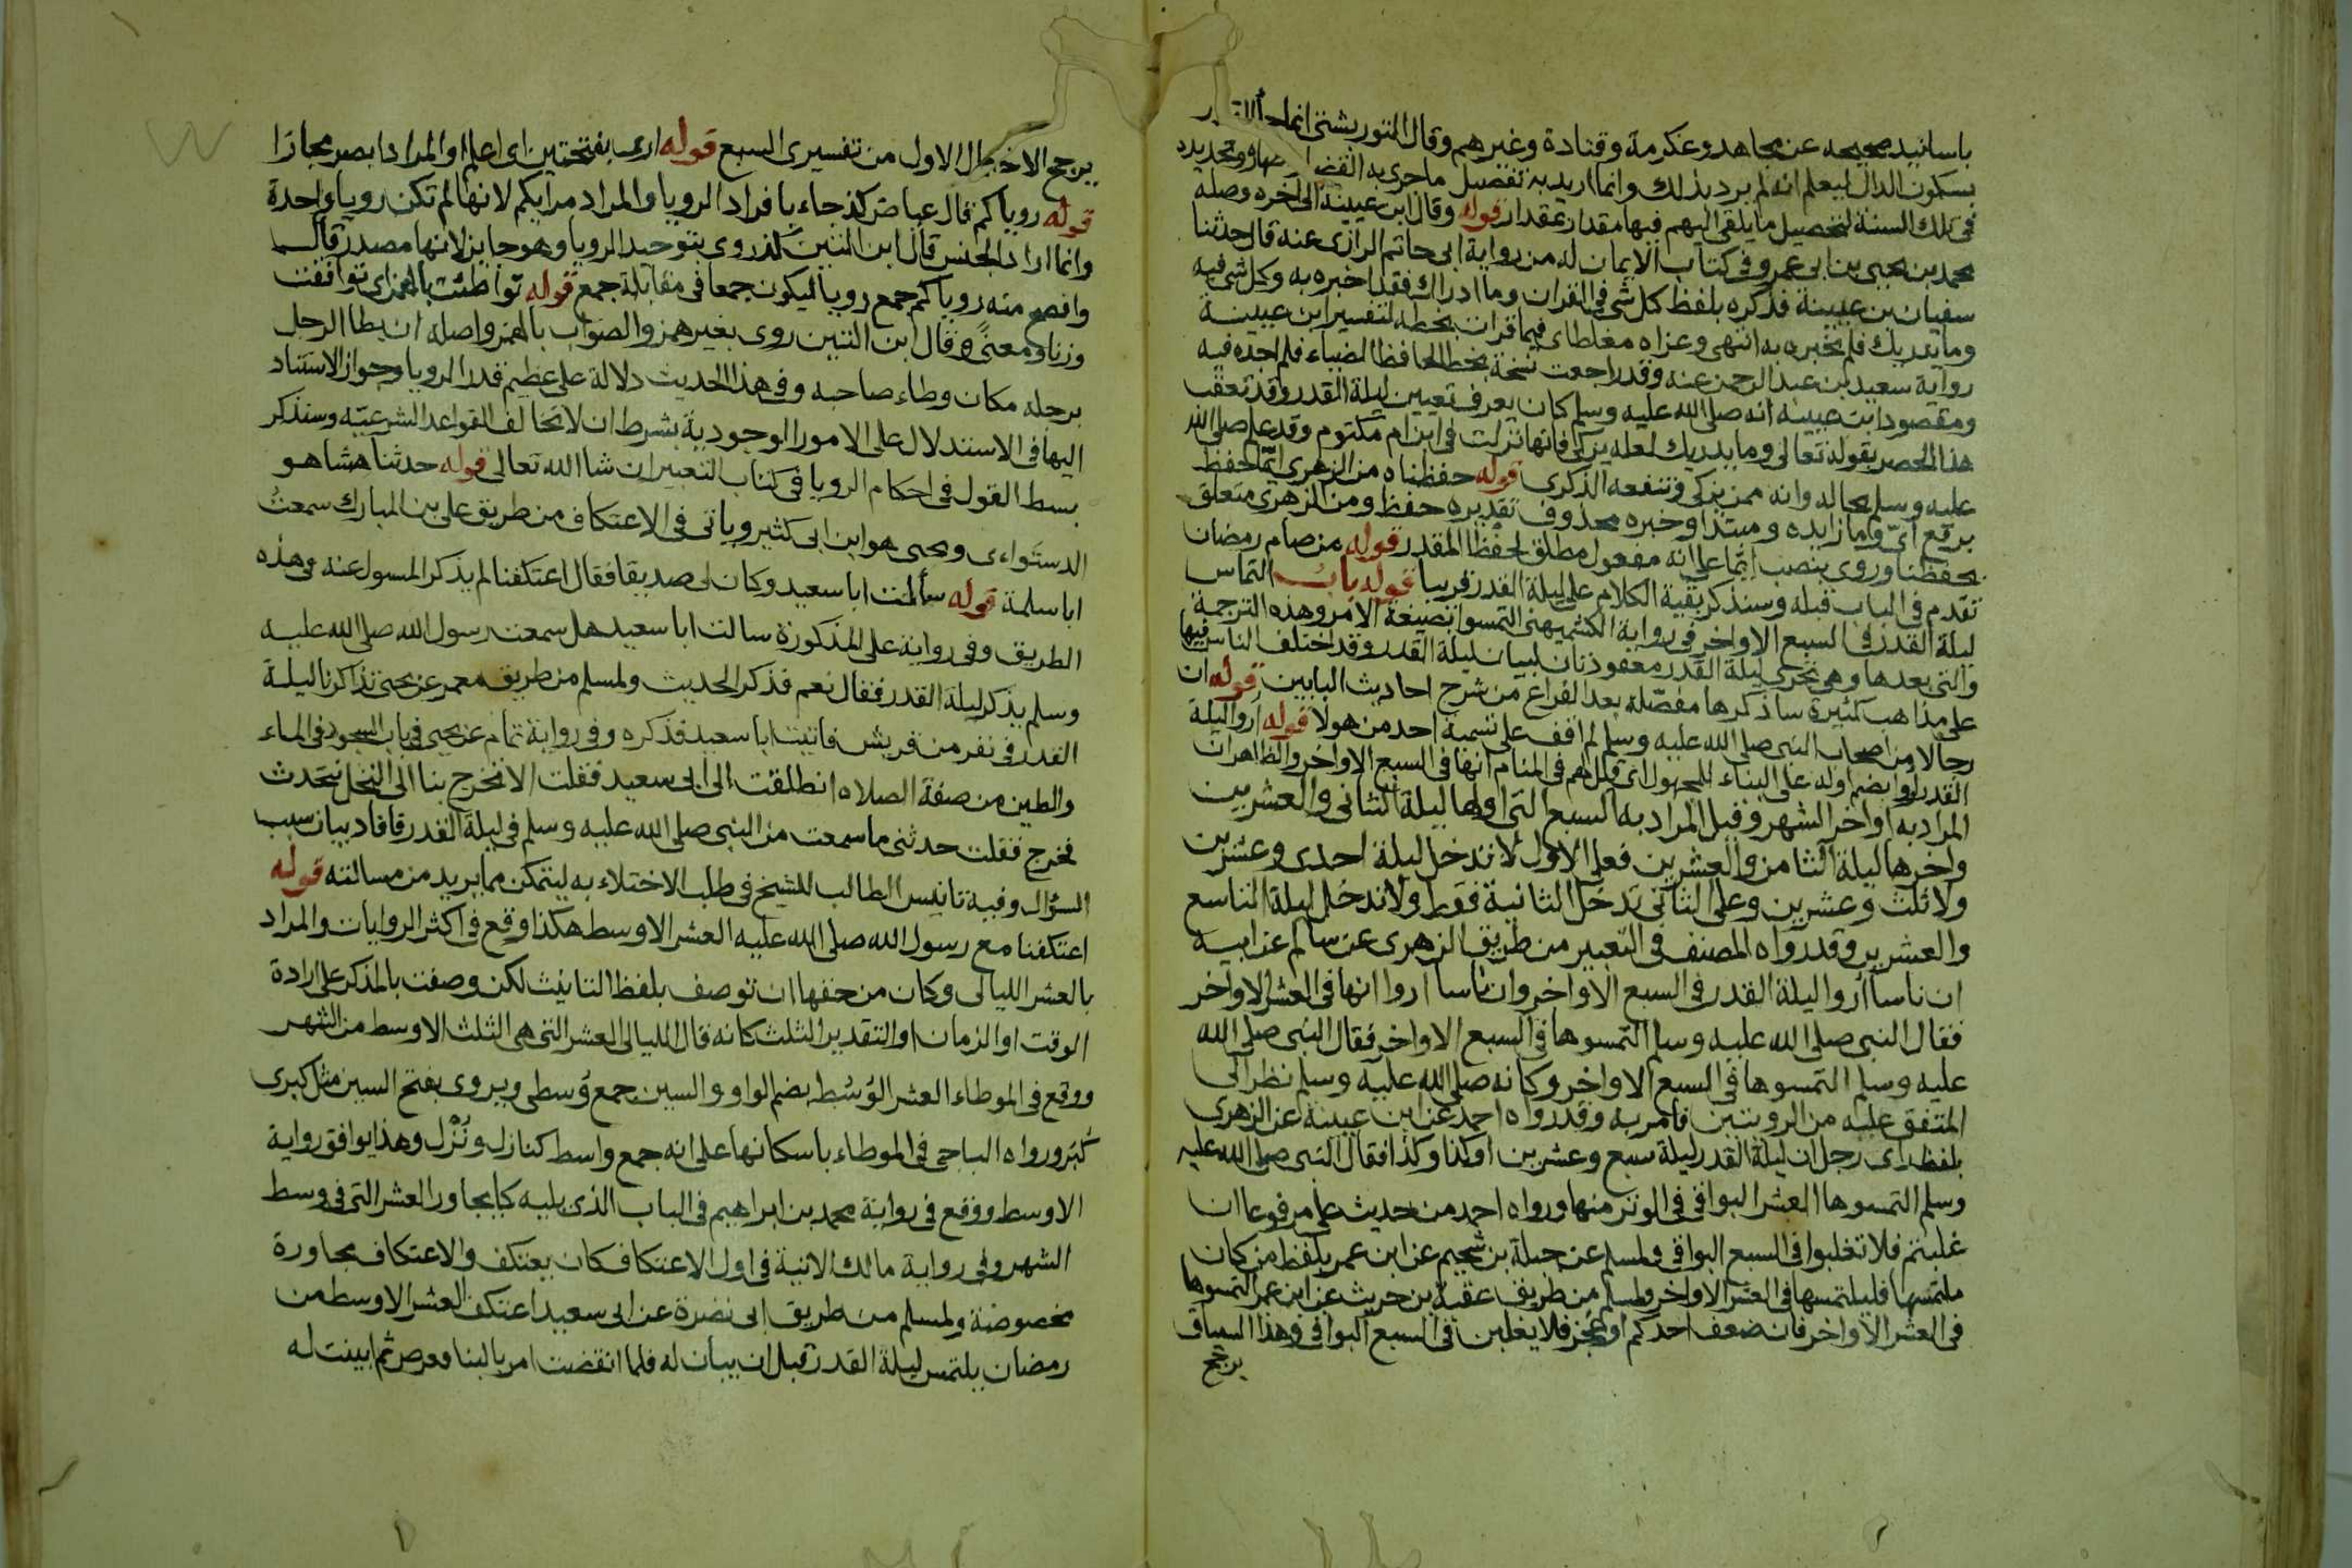 باسانيد صحيحه عن مجاهد وعكرمة وقتادة وغيرهم وقال التوربشتى انما جا القدر
بسكون الدال ليعلم انه لم يرد بذلك وانما اريد به تفصيل ماجرى به القضا وتحديده
فى تلك السنة لتحصيل مايلقى اليهم فيها مقدار بمقدار قوله وقال ابن عيينة الى آخره وصله
محمد بن يحيى بن ابى عمرو فى كتاب الايمان له من رواية ابى حاتم الرازى عنه قال حدثنا
سفيان بن عيينة فذكره بلفظ كل شى فى القران وما ادراك فقد اخبره به وكل شى فيه
وما يدريك فلم يخبره به انتهى وعزاه مغلطاى فيما قرات بخطه لتفسير ابن عيينة
رواية سعيد بن عبد الرحمن عنه وقد راجعت نسخة بخط الحافظ الضياء فلم اجده فيه
ومقصود ابن عيينه انه صلى الله عليه وسلم كان يعرف تعيين ليلة القدر وقد تعقب
هذا الحصر بقوله تعالى وما يدريك لعله يزكى فانها نزلت فى ابن ام مكتوم وقد علم صلى الله
عليه وسلم بحاله وانه ممن يزكى وتنفعه الذكرى قوله حفظناه من الزهرى ايما حفظ
برفع اىّ وما زايده ومبتدا وخبره محذوف تقديره حفظ ومن الزهرى متعلق
بحفظنا وروى بنصب ايّما على انه مفعول مطلق لحفظ المقدر قوله من صام رمضان
تقدم فى الباب قبله وسنذكر بقية الكلام على ليلة القدر قريبا قوله باب التماس
ليلة القدر فى السبع الاواخر فى رواية الكشميهنى التمسوا بصيغة الامر وهذه الترجمة
والتى بعدها وهى تحرى ليلة القدر معقودتان لبيان ليلة القدر وقد اختلف الناس فيها
على مذاهب كثيرة ساذكرها مفصّلة بعد الفراغ من شرح احاديث البابين قوله ان
رجالا من اصحاب النبى صلى الله عليه وسلم لم اقف على تسمية احد من هولا قوله اروا ليلة
القدر اروا بضم اوله على البناء للمجهول اى قيل لهم فى المنام انها فى السبع الاواخر والظاهر ان
المراد به اواخر الشهر وقيل المراد به السبع التى اولها ليلة الثانى والعشرين
واخرها ليلة الثامن والعشرين فعلى الاول لا تدخل ليلة احدى وعشرين
ولا ثلث وعشرين وعلى الثانى تدخل الثانية فقط ولا تدخل ليلة التاسع
والعشرين وقد رواه المصنف فى التعبير من طريق الزهرى عن سالم عن ابيه
ان ناسا اروا ليلة القدر فى السبع الاواخر وان ناسا اروا انها فى العشر الاواخر
فقال النبى صلى الله عليه وسلم التمسوها فى السبع الاواخر فقال النبى صلى الله
عليه وسلم التمسوها فى السبع الاواخر وكانه صلى الله عليه وسلم نظر الى
المتفق عليه من الرويتين فامر به وقد رواه احمد عن ابن عيينة عن الزهرى
بلفظ راى رجل ان ليلة القدر ليلة سبع وعشرين او كذا وكذا فقال النبى صلى الله عليه
وسلم التمسوها العشر البواقى فى الوتر منها ورواه احمد من حديث على مرفوعا ان
غلبتم فلا تغلبوا فى السبع البواقى ولمسلم عن جبلة بن سحيم عن ابن عمر بلفظ من كان
ملتمسها فليلتمسها فى العشر الاواخر ولمسلم من طريق عقبة بن حريث عن ابن عمر التمسوها
فى العشر الاواخر فان ضعف احدكم او عجز فلا يغلبن فى السبع البواقى وهذا السياق
يرجّح
يرجح الاحتمال الاول من تفسيرى السبع قوله ارى بفتحتين اى اعلم او المراد ابصر مجازا
قوله روياكم قال عياض كذ جاء بافراد الرويا والمراد مرايكم لانها لم تكن رويا واحدة
وانما اراد الجنس قال ابن التين كذ روى بتوحيد الرويا وهو جايز لانها مصدر قال
وافصح منه روياكم جمع رويا ليكون جمعا فى مقابلة جمع قوله تواطئت بالهمز اى توافقت
وزنا ومعنًى وقال ابن التين روى بغير همز والصواب بالهمز واصله ان يطا الرجل
برجله مكان وطاء صاحبه وفى هذا الحديث دلالة على عظيم قدر الرويا وجواز الاستناد
اليها فى الاستدلال على الامور الوجودية بشرط ان لا تخالف القواعد الشرعيّه وسنذكر
بسط القول فى احكام الرويا فى كتاب التعبير ان شا الله تعالى قوله حدثنا هشا هو
الدستواءى ويحيى هو ابن ابى كثير وياتى فى الاعتكاف من طريق على بن المبارك سمعتُ
ابا سلمة قوله سألت ابا سعيد وكان لى صديقا فقال اعتكفنا لم يذكر المسول عنه فى هذه
الطريق وفى رواية على المذكورة سالت ابا سعيد هل سمعت رسول الله صلى الله عليه
وسلم يذكر ليلة القدر فقال نعم فذكر الحديث ولمسلم من طريق معمر عن يحيى تذاكرنا ليلة
القدر فى نفر من قريش فاتيت ابا سعيد فذكره وفى رواية تمام عن يحيى فى باب السجود فى الماء
والطين من صفة الصلاه انطلقت الى ابى سعيد فقلت الا تخرج بنا الى النخل نتحدث
فخرج فقلت حدثنى ما سمعت من النبى صلى الله عليه وسلم فى ليلة القدر قافاد بيان سبب
السؤال وفيه تانيس الطالب للشيخ فى طلب الاختلاء به ليتمكن مما يريد من مسالته قوله
اعتكفنا مع رسول الله صلى الله عليه العشر الاوسط هكذا وقع فى اكثر الروايات والمراد
بالعشر الليالى وكان من حقها ان توصف بلفظ التانيث لكن وصفت بالمذكر على ارادة
الوقت او الزمان او التقدير الثلث كانه قال الليالى العشر التى هى الثلث الاوسط من الشهر
ووقع فى الموطاء العشر الوُسُط بضم الواو والسين جمع وُسطى ويروى بفتح السين مثل كبرى
كُبَر ورواه الباجى فى الموطاء باسكانها على انه جمع واسط كنازل ونُزْل وهذا يوافق رواية
الاوسط ووقع فى رواية محمد بن ابراهيم فى الباب الذى يليه كا يجاور العشر التى فى وسط
الشهر وفى رواية مالك الاتية فى اول الاعتكاف كان يعتكف والاعتكاف مجاورة
مخصوصة ولمسلم من طريق ابى نضرة عن ابى سعيد اعتكف العشر الاوسط من
رمضان يلتمس ليلة القدر قبل ان يبان له فلما انقضت امر بالبنا فعرض ثم ابينت له